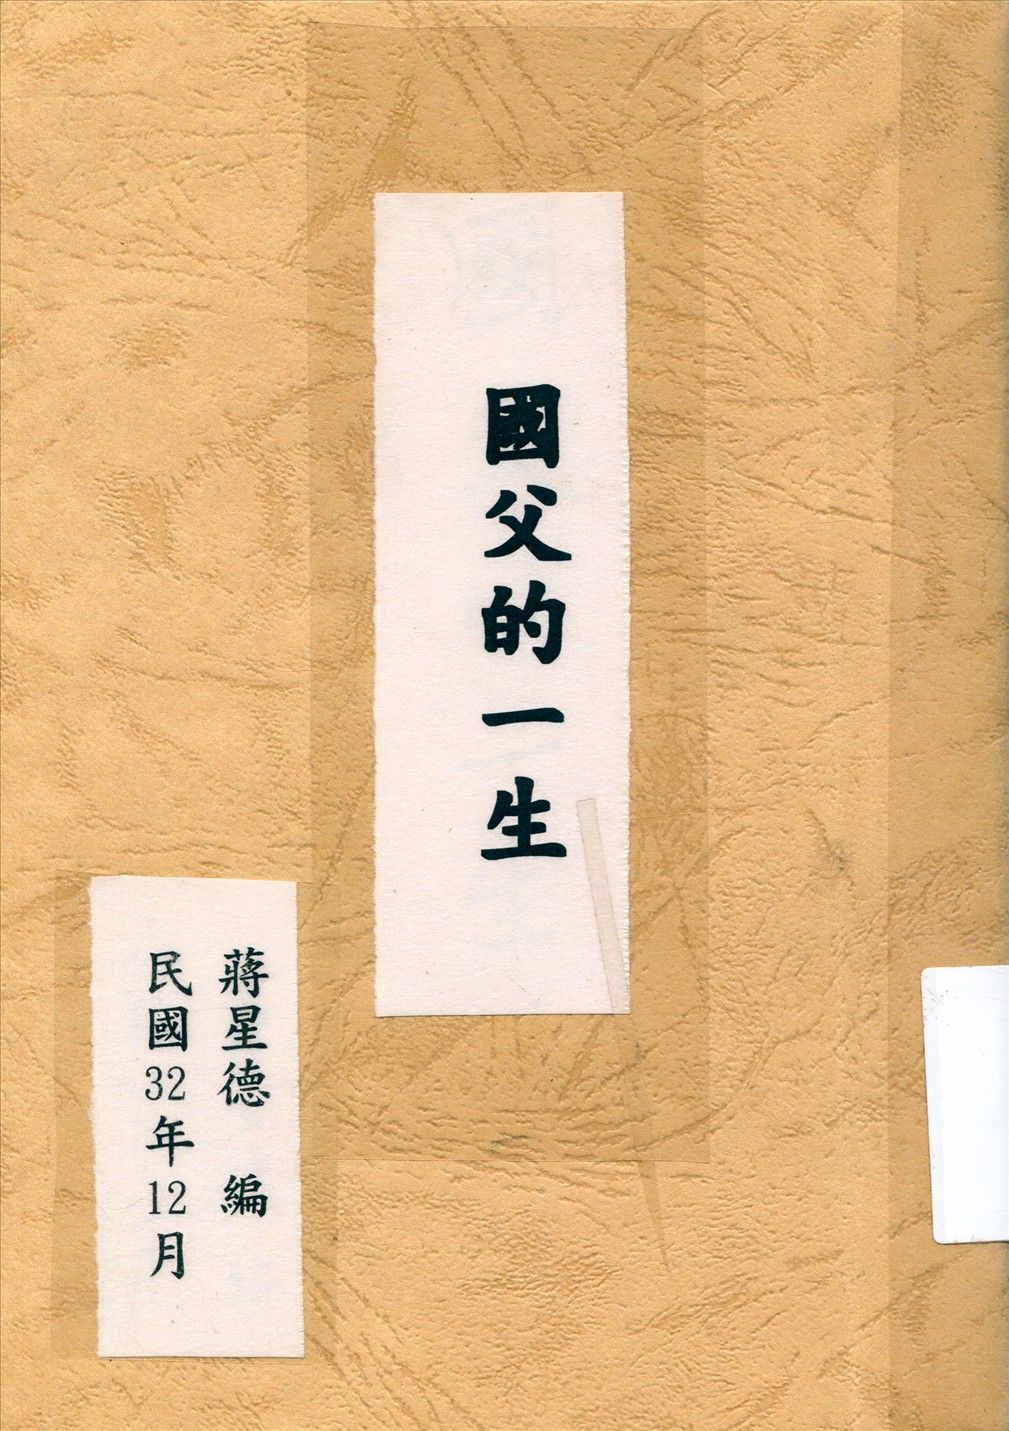 國父的一生
蔣星德 編
民國32年12月